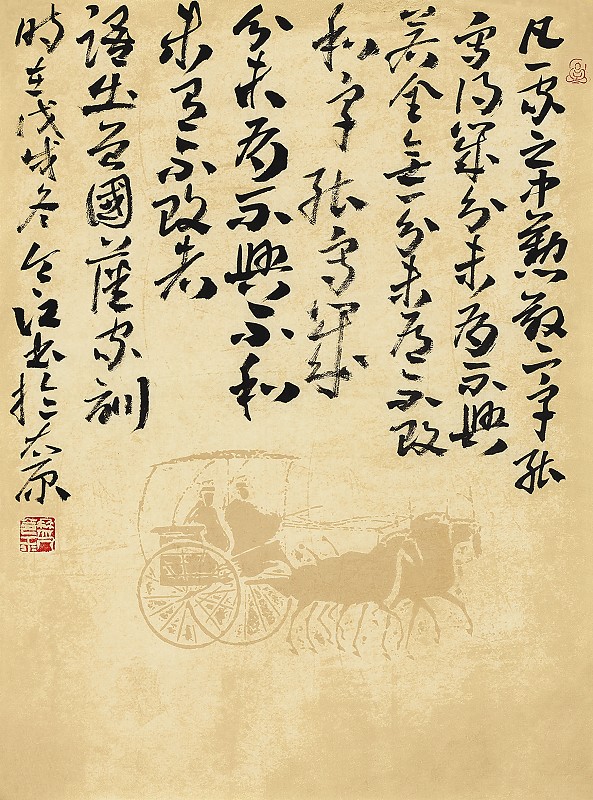 凡一家之中懃敬二字能
守得幾分未有不興
若全無一分未有不敗
和字能守幾
分未有不興不和
未有不敗者
語出曾國藩家訓
時在戊戌冬江書於太原